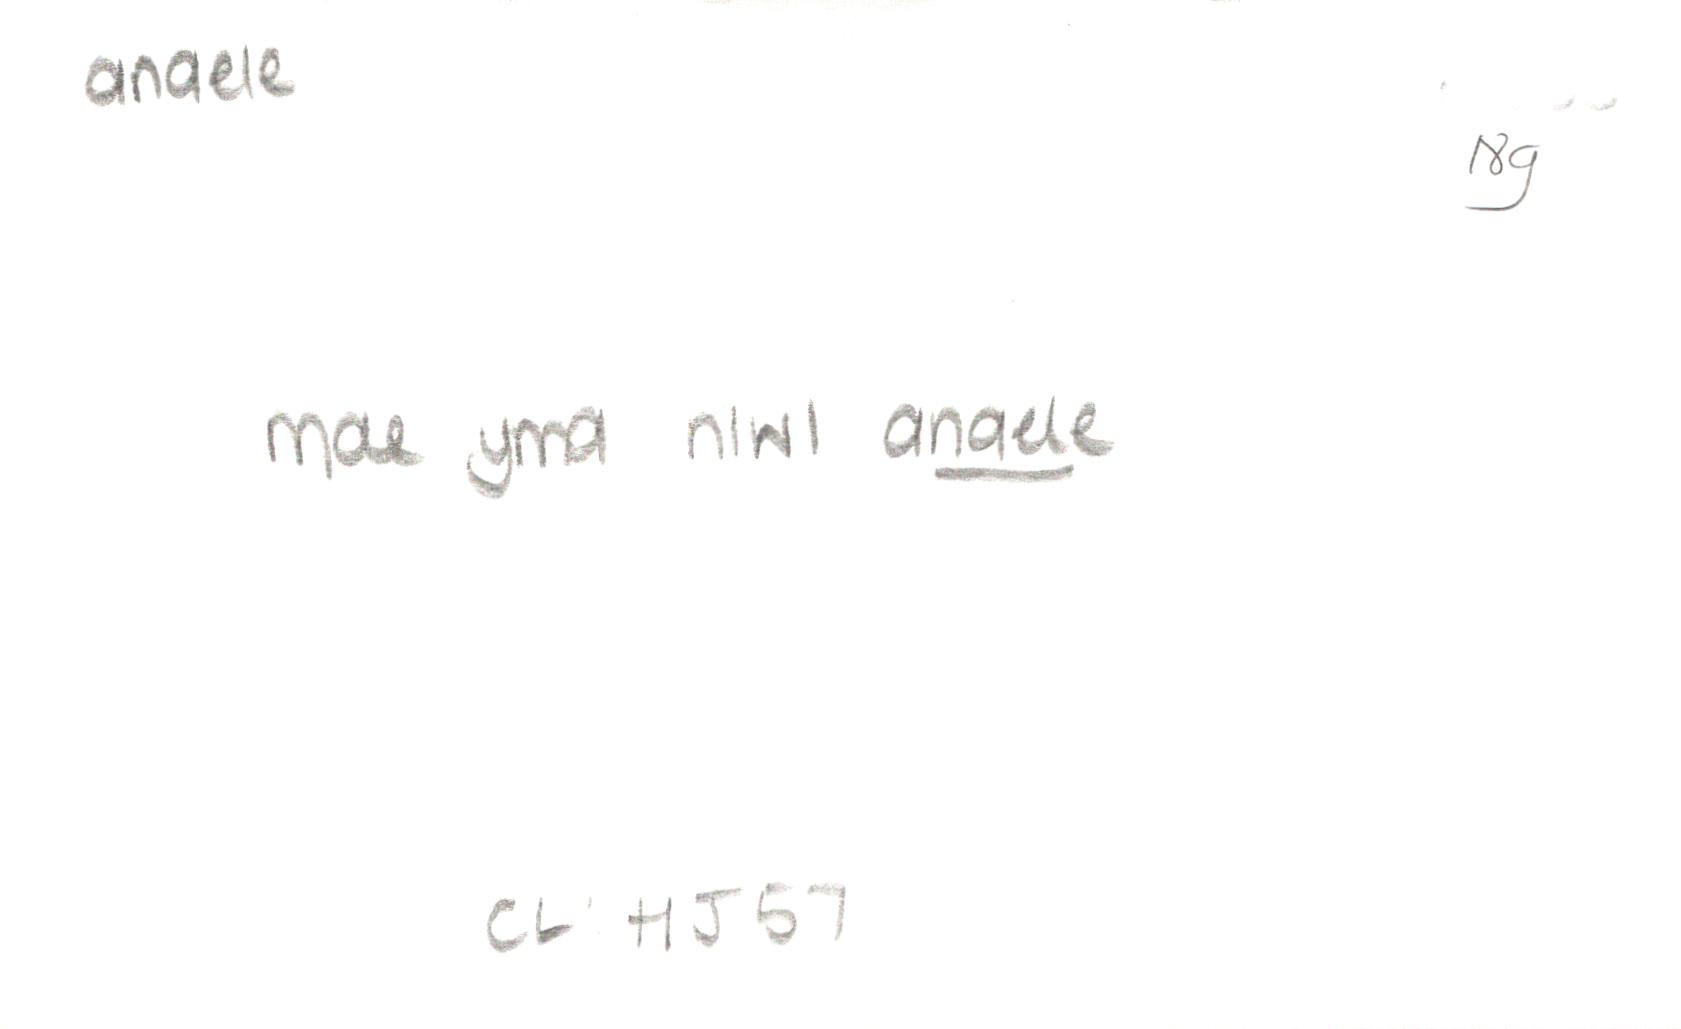 anaele
Ng
mae yma niwl anaele
CL: HJ57